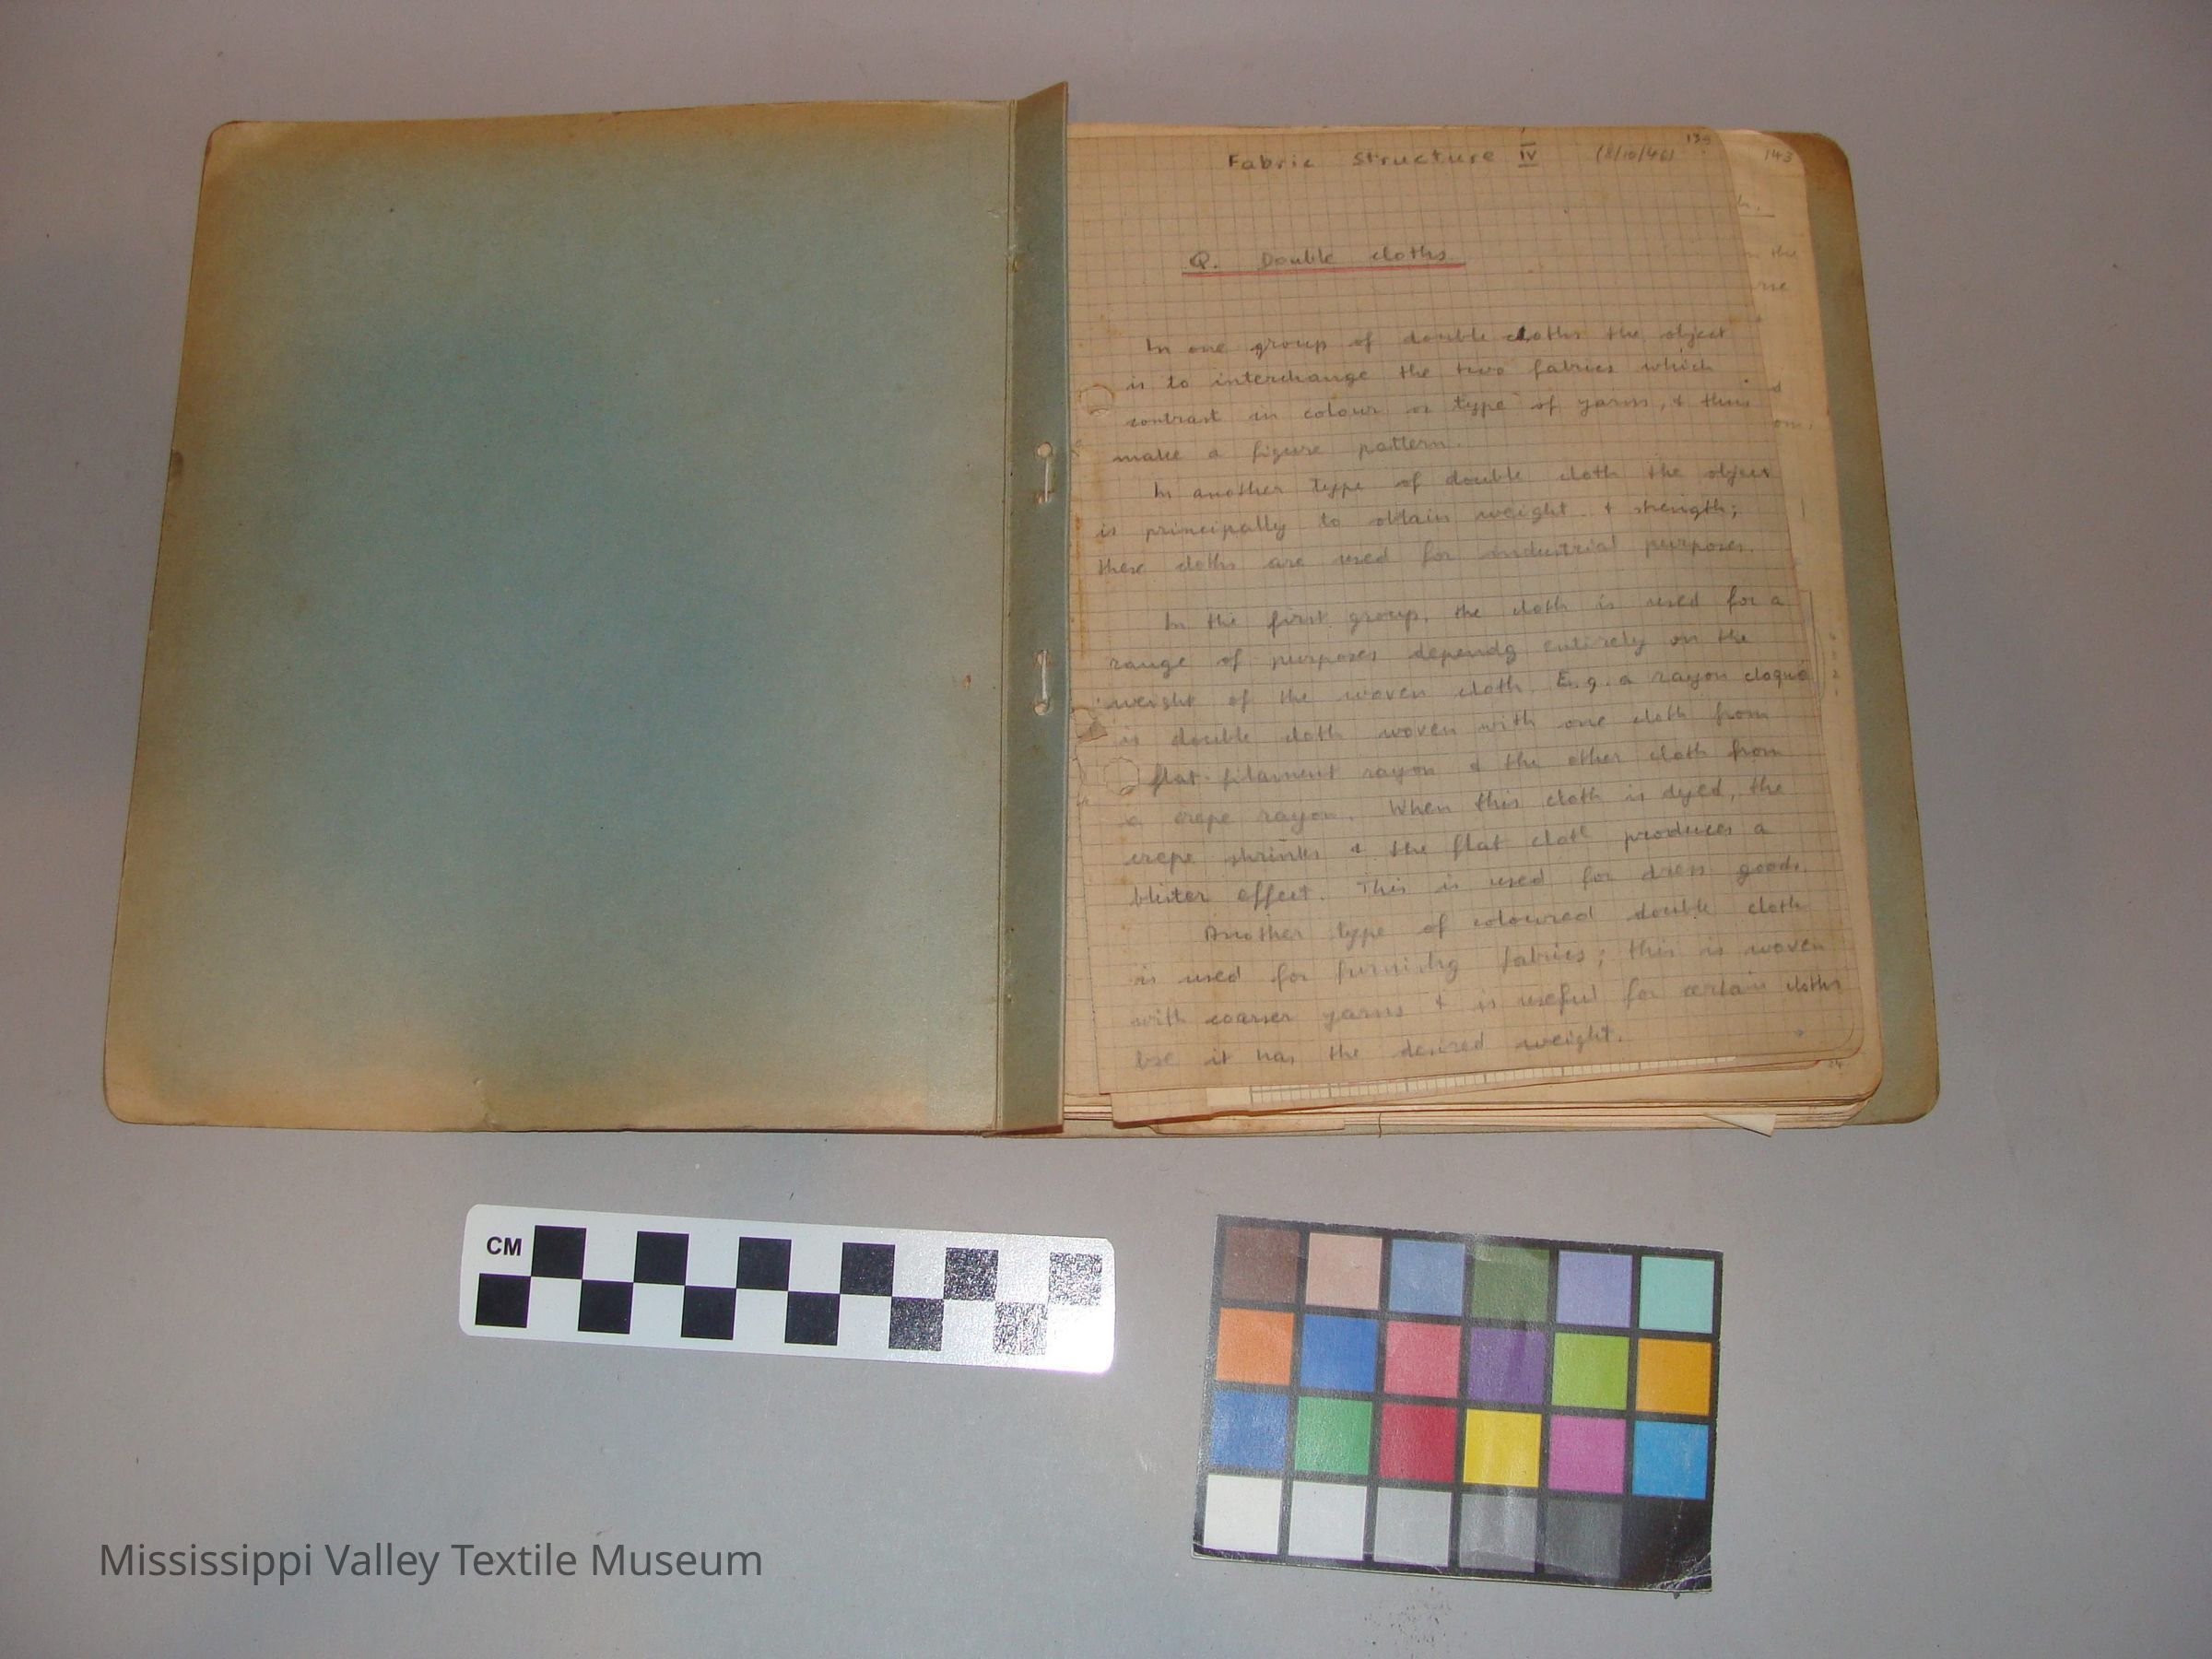 Fabric Structure IV (8/10/46) 139
143
Q. Double cloths
In one group of double cloths the object
is to interchange the two fabrics which
contrast in colour or type of yarns, & thus
make a figure pattern.
In another type of double cloth the object
is principally to obtain weight & strength;
these cloths are used for industrial purposes.
In the first group, the cloth is used for a
range of purposes dependg entirely on the
weight of the woven cloth. E.g. a rayon cloqué
is double cloth woven with one cloth from
flat filament rayon & the other cloth from
a crepe rayon. When this cloth is dyed, the
crepe shrinks & the flat cloth produces a
blister effect. This is used for dress goods.
Another type of coloured double cloth
is used for furnishg fabrics; this is woven
with coarser yarns & is useful for certain cloths
bse it has the desired weight.
the
CM
Mississippi Valley Textile Museum